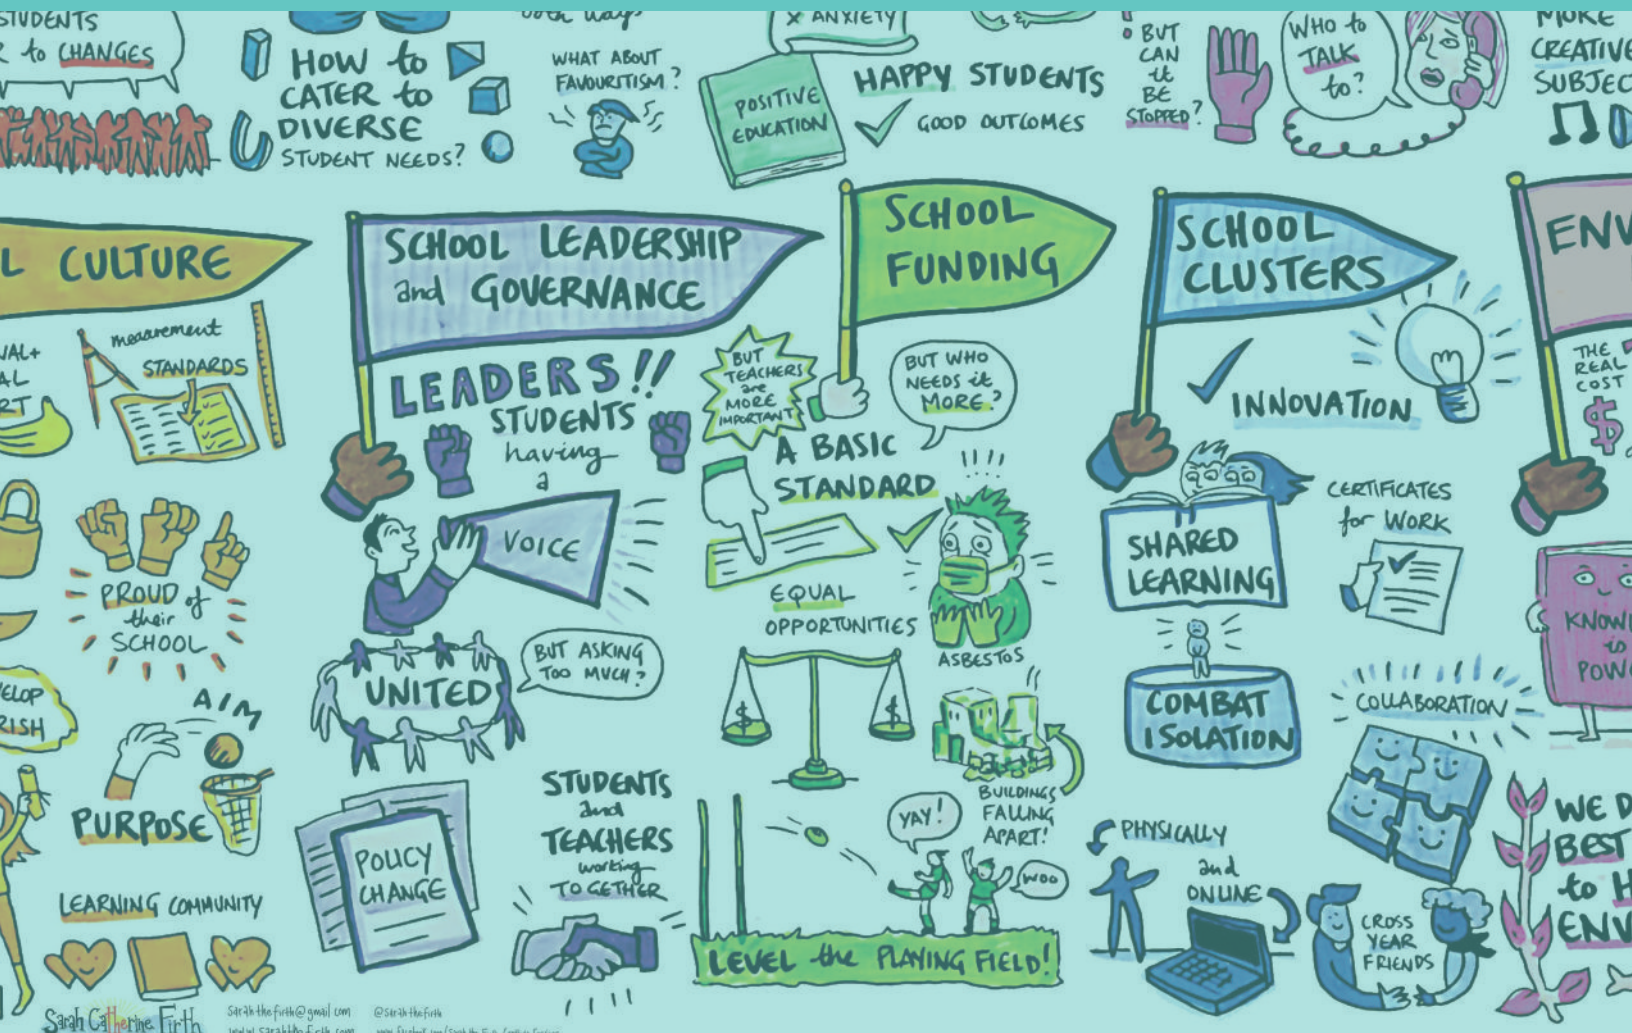 STUDENTS
to CHANGES
HOW to
CATER to
DIVERSE
STUDENT NEEDS?
both ways
WHAT ABOUT
FAVOURITISM?
X ANXIETY
POSITIVE
EDUCATION
HAPPY STUDENTS
GOOD OUTCOMES
BUT
CAN
it
BE
STOPPED?
WHO to
TALK
to?
MORE
CREATIVE
SUBJEC
L CULTURE
measurement
STANDARDS
PROUD of
their
SCHOOL
AIM
PURPOSE
LEARNING COMMUNITY
SCHOOL LEADERSHIP
and GOVERNANCE
LEADERS!!
STUDENTS
having
a
VOICE
UNITED
BUT ASKING
TOO MUCH?
POLICY
CHANGE
STUDENTS
and
TEACHERS
working
TOGETHER
SCHOOL
FUNDING
BUT
TEACHERS
are
MORE
IMPORTANT
BUT WHO
NEEDS it
MORE?
A BASIC
STANDARD
EQUAL
OPPORTUNITIES
ASBESTOS
$ $
BUILDINGS
FALLING
APART!
YAY!
WOO
LEVEL the PLAYING FIELD!
SCHOOL
CLUSTERS
INNOVATION
SHARED
LEARNING
CERTIFICATES
for WORK
COMBAT
ISOLATION
COLLABORATION
PHYSICALLY
and
ONLINE
CROSS
YEAR
FRIENDS
ENV
THE
REAL
COST
$
KNOWL
is
POW
WE D
BEST
to H
ENV
Sarah Catherine Firth
sarahthefirth@gmail.com @sarahthefirth
www.sarahthefirth.com